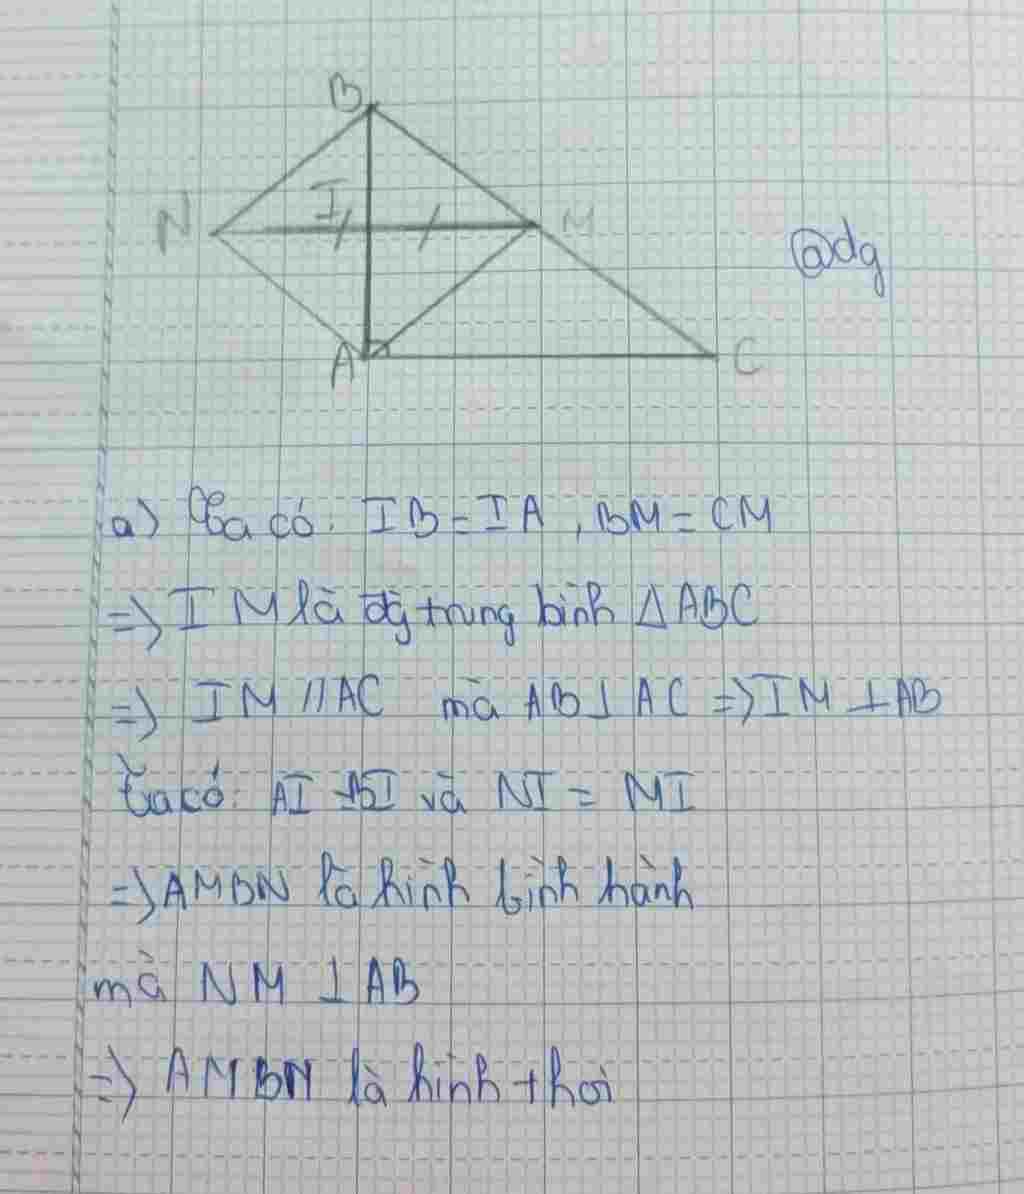 B
N I M
@dg
A C
a) Ta có: IB = IA, BM = CM
=> IM là đg trung bình △ABC
=> IM // AC mà AB ⊥ AC => IM ⊥ AB
Ta có: AI = BI và NI = MI
=> AMBN là hình bình hành
mà NM ⊥ AB
=> AMBN là hình thoi